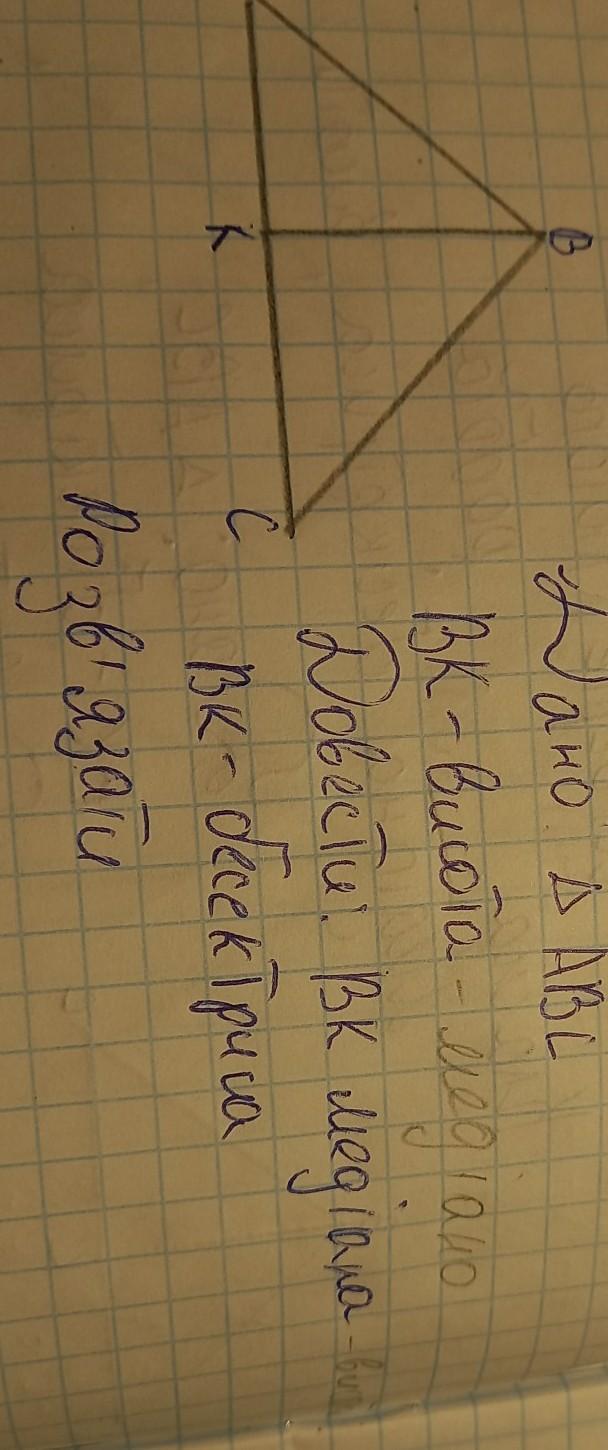 B
K
C
Дано: Δ ABC
BK - висота - медіано
Довести: BK медіана -
BK - бісектриса
Розв'язати